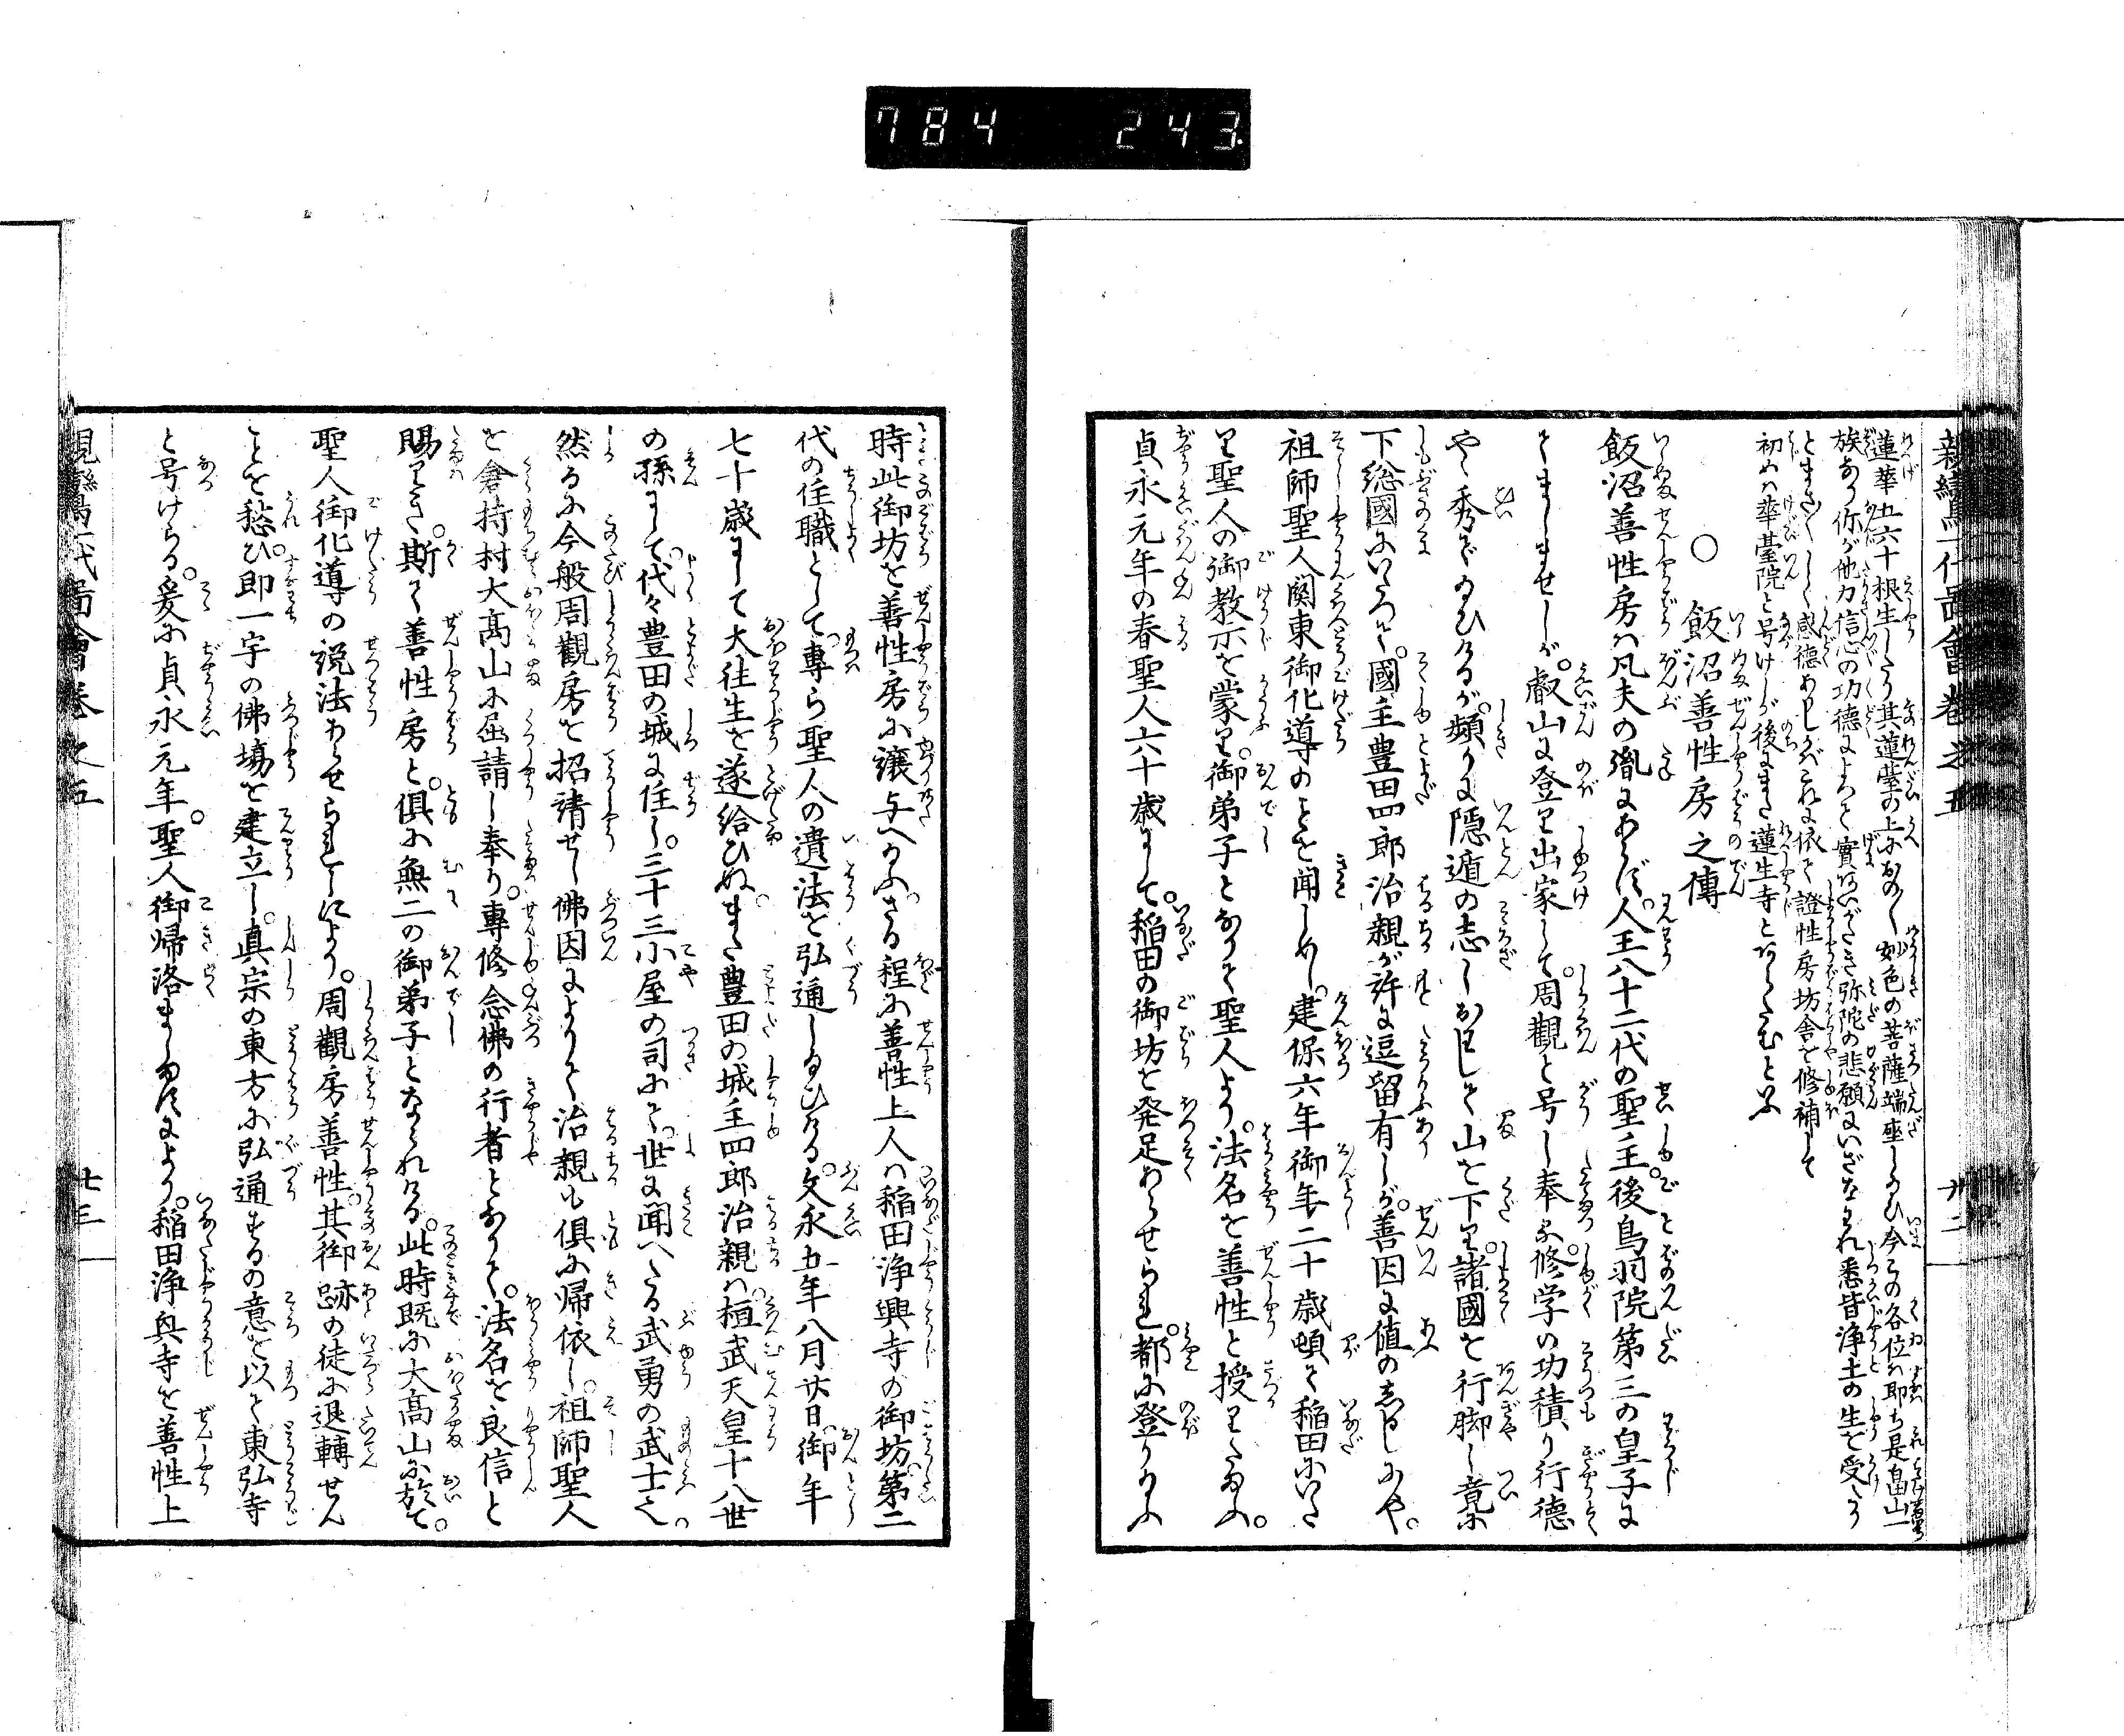 784 243
親鸞聖人一代圖會巻之五 廿二
蓮華五六十根生したり其蓮臺の上におの〳〵妙色の菩薩端座し給ひ今この各位は即ち是畠山一
族なり你が他力信心の功徳によりて實有がたき弥陀の悲願にいざなはれ悉皆浄土の生を受たり
とまさしく感徳ありしがこれに依て證性房坊舎を修補して
初めは華臺院と号けしが後にまた蓮生寺とあらたむといふ
○飯沼善性房之傳
飯沼善性房は凡夫の胤にあらず。人王八十二代の聖主。後鳥羽院第三の皇子に
てましませしが。叡山に登り出家して。周觀と号し奉る。修学の功積り行徳
やゝ秀で給ひけるが。頻りに隠遁の志しおはして山を下り。諸國を行脚し竟に
下総國にいたりて。國主豊田四郎治親が許に逗留有しが。善因に値のしるしにや。
祖師聖人関東御化導のことを聞しめし。建保六年御年二十歳頓て稲田にいた
り聖人の御教示を蒙り。御弟子となりて聖人より。法名を善性と授り給ふ。
貞永元年の春聖人六十歳にして。稲田の御坊を発足あらせられ。都に登り給ふ
時此御坊を善性房に譲与へ給ふ。さる程に善性上人は稲田浄興寺の御坊。第二
代の住職として。専ら聖人の遺法を弘通し給ひける。文永五年八月廿日。御年
七十歳にして大往生を遂給ひぬ。また豊田の城主四郎治親は。桓武天皇十八世
の孫にして。代々豊田の城に住し。三十三小屋の司にて。世に聞へたる武勇の武士也。
然るに今般周觀房を招請せし佛因によりて。治親も倶に帰依し。祖師聖人
を倉持村大高山に屈請し奉り。専修念佛の行者となりて。法名を良信と
賜りき。斯て善性房と。倶に無二の御弟子となられける。此時既に大高山に於て。
聖人御化導の説法あらせられしにより。周觀房善性。其御跡の徒に退轉せん
ことを愁ひ。即一宇の佛場を建立し。真宗の東方に弘通するの意を以て東弘寺
と号けらる。爰に貞永元年。聖人御帰洛ましますにより。稲田浄興寺を善性上
親鸞聖人一代圖會巻之五 廿三